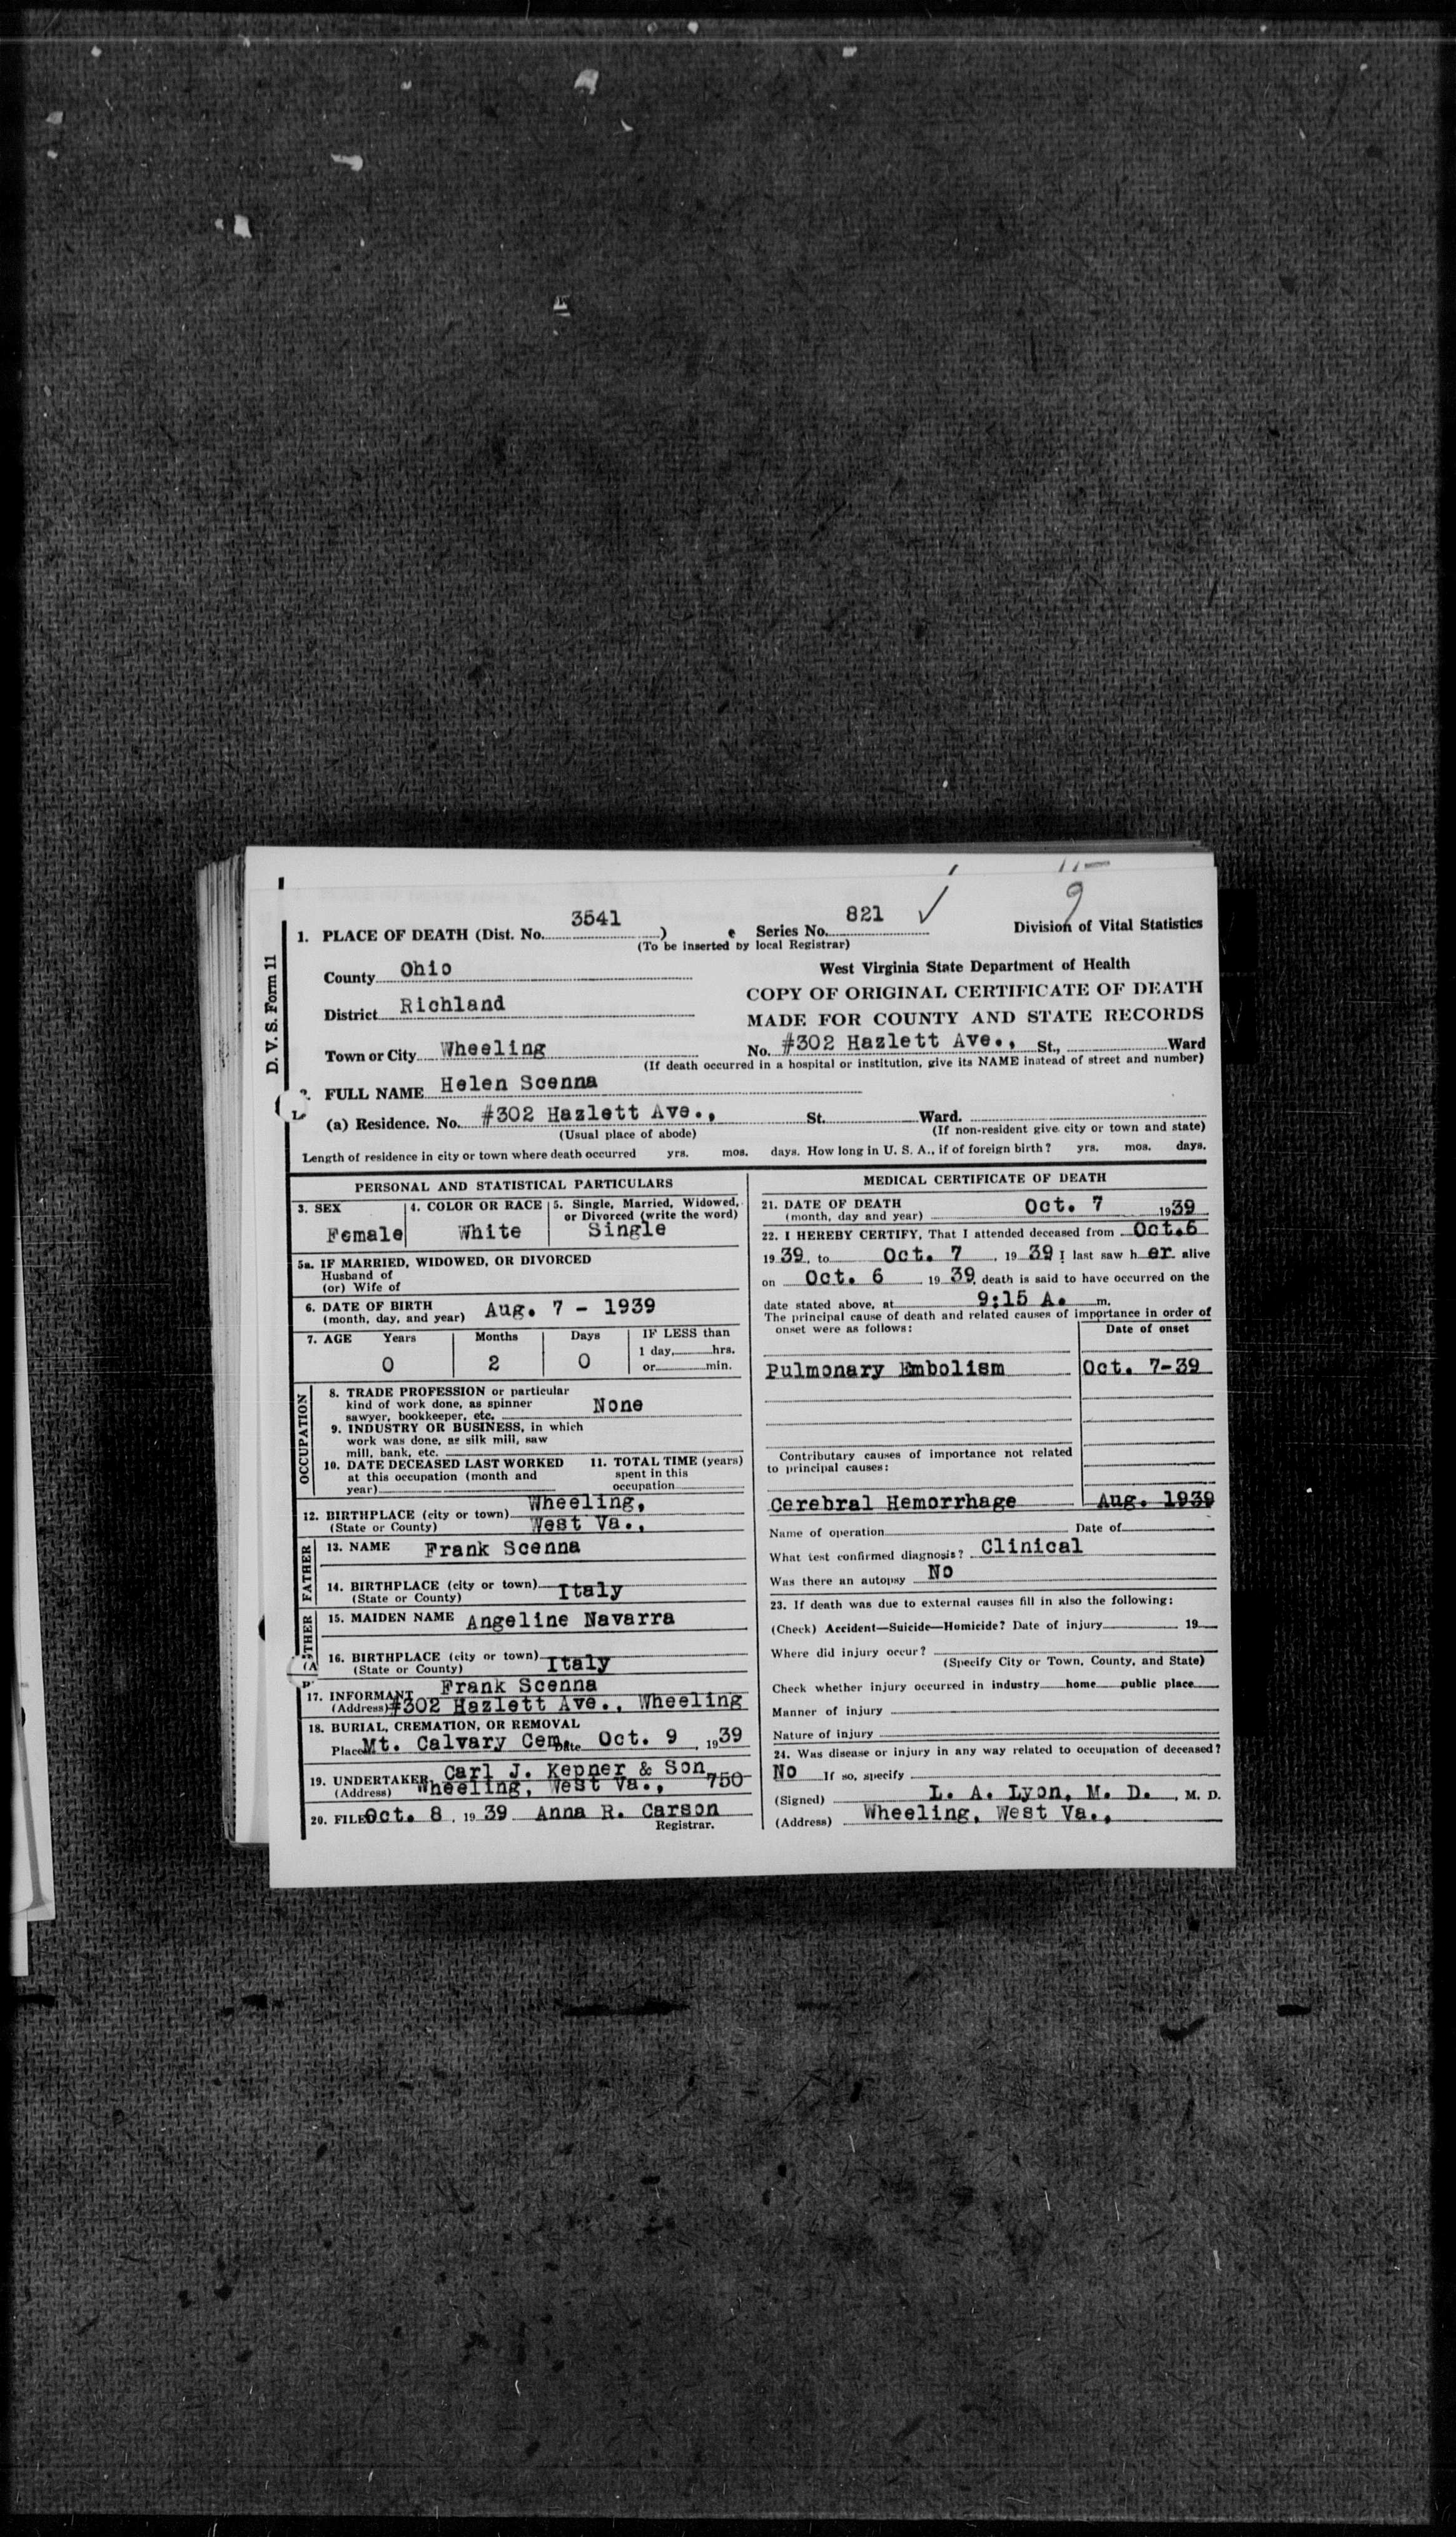 D. V. S. Form 11
11-
9
1. PLACE OF DEATH (Dist. No. 3541 ) Series No. 821
(To be inserted by local Registrar)
Division of Vital Statistics
County Ohio
West Virginia State Department of Health
COPY OF ORIGINAL CERTIFICATE OF DEATH
District Richland
MADE FOR COUNTY AND STATE RECORDS
Town or City Wheeling No. #302 Hazlett Ave., St., Ward
(If death occurred in a hospital or institution, give its NAME instead of street and number)
FULL NAME Helen Scenna
(a) Residence. No. #302 Hazlett Ave., St. Ward.
(Usual place of abode) (If non-resident give city or town and state)
Length of residence in city or town where death occurred yrs. mos. days. How long in U. S. A., if of foreign birth? yrs. mos. days.
PERSONAL AND STATISTICAL PARTICULARS
3. SEX 4. COLOR OR RACE 5. Single, Married, Widowed, or Divorced (write the word)
Female White Single
5a. IF MARRIED, WIDOWED, OR DIVORCED
Husband of
(or) Wife of
6. DATE OF BIRTH
(month, day, and year) Aug. 7 - 1939
7. AGE Years Months Days IF LESS than
1 day, hrs.
0 2 0 or min.
OCCUPATION
8. TRADE PROFESSION or particular
kind of work done, as spinner
sawyer, bookkeeper, etc. None
9. INDUSTRY OR BUSINESS, in which
work was done, as silk mill, saw
mill, bank, etc.
10. DATE DECEASED LAST WORKED
at this occupation (month and
year)
11. TOTAL TIME (years)
spent in this
occupation
12. BIRTHPLACE (city or town) Wheeling,
(State or County) West Va.,
FATHER
13. NAME Frank Scenna
14. BIRTHPLACE (city or town)
(State or County) Italy
15. MAIDEN NAME Angeline Navarra
16. BIRTHPLACE (city or town)
(State or County) Italy
17. INFORMANT Frank Scenna
(Address) #302 Hazlett Ave., Wheeling
18. BURIAL, CREMATION, OR REMOVAL
Place Mt. Calvary Cem. Date Oct. 9, 1939
19. UNDERTAKER Carl J. Kepner & Son
(Address) Wheeling, West Va., 750
20. FILED Oct. 8, 1939 Anna R. Carson
Registrar.
MEDICAL CERTIFICATE OF DEATH
21. DATE OF DEATH
(month, day and year) Oct. 7 1939
22. I HEREBY CERTIFY, That I attended deceased from Oct.6
1939, to Oct. 7, 1939 I last saw her alive
on Oct. 6 1939, death is said to have occurred on the
date stated above, at 9:15 A. m.
The principal cause of death and related causes of importance in order of
onset were as follows: Date of onset
Pulmonary Embolism Oct. 7-39
Contributory causes of importance not related
to principal causes:
Cerebral Hemorrhage Aug. 1939
Name of operation Date of
What test confirmed diagnosis? Clinical
Was there an autopsy No
23. If death was due to external causes fill in also the following:
(Check) Accident—Suicide—Homicide? Date of injury 19
Where did injury occur?
(Specify City or Town, County, and State)
Check whether injury occurred in industry home public place
Manner of injury
Nature of injury
24. Was disease or injury in any way related to occupation of deceased?
No If so, specify
(Signed) L. A. Lyon, M. D., M. D.
(Address) Wheeling, West Va.,